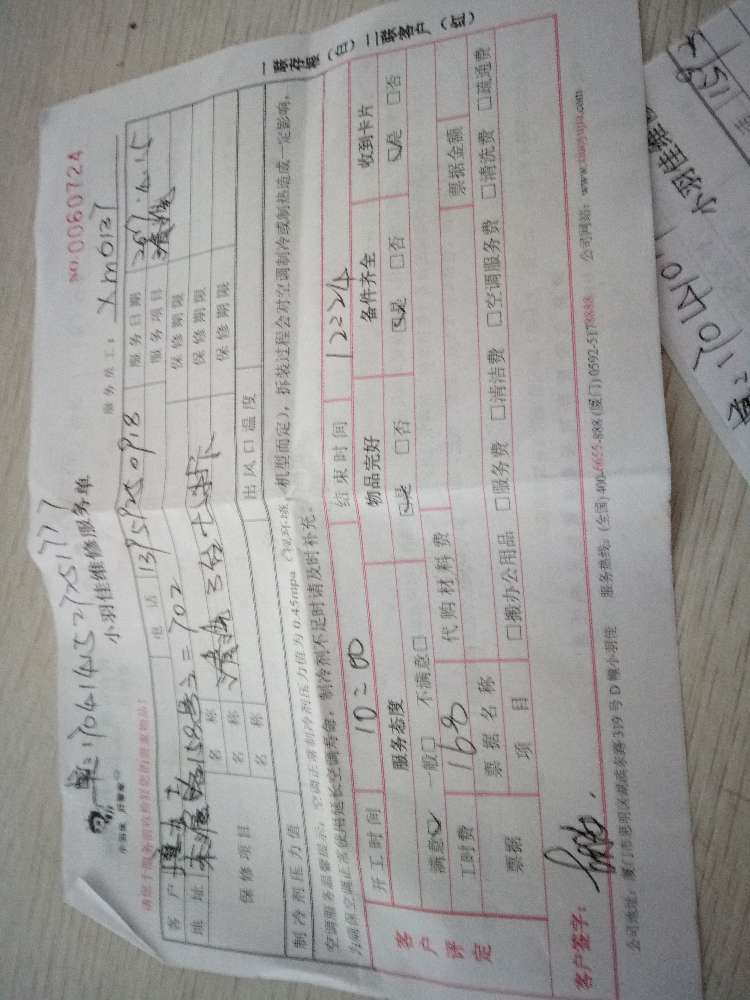 一联存根（白）二联客户（红）
NO.0060724
单:170414152725177
小羽佳维修服务单
服务员工: Xm0127
请您于服务前收拾好您的贵重物品!
客户
电话 13959250918
服务日期 2017.4.15
地址 158号2=702
服务项目 清洗
保修项目
名称 清洗3台
保修期限
名称
保修期限
名称
保修期限
制冷剂压力值
出风口温度
空调服务温馨提示:空调正常制冷剂压力值为0.45mpa(视环境、机型而定),拆装过程会对空调制冷或制热造成一定影响,
为确保空调正常使用延长空调寿命,制冷剂不足时请及时补充。
客户评定
开工时间 10=00
结束时间 12=24
服务态度
物品完好
备件齐全
收到卡片
满意☑ 一般□ 不满意□
☑是 □否
☑是 □否
☑是 □否
工时费 168
代购材料费
票据
票据名称
票据金额
项目
□搬办公用品 □服务费 □清洁费 □空调服务费 □清洗费 □疏通费
客户签字:
公司地址:厦门市思明区湖滨东路319号D幢小羽佳
服务热线:(全国)400-6655-888(厦门)0592-5178888
公司网站:www.xiaoyujia.com
小羽佳维
单:170410